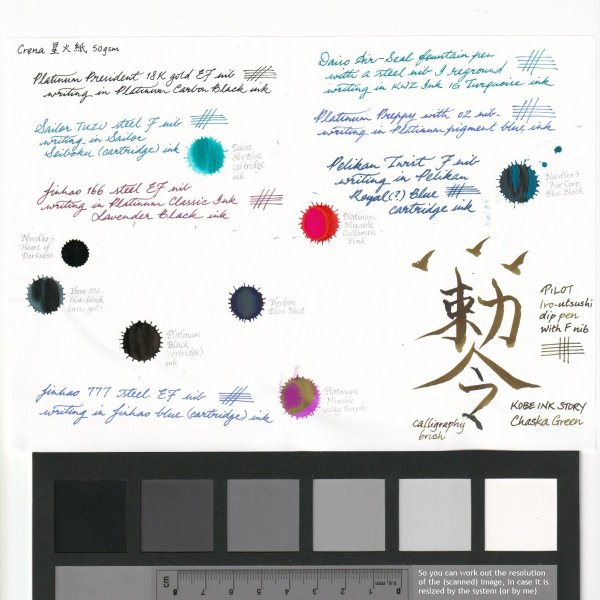 Crena 星火紙, 50gsm
Platinum President 18K gold EF nib
writing in Platinum Carbon Black ink
Sailor TUZU steel F nib
writing in Sailor
Seiboku (cartridge) ink
Daiso
Sky Blue
cartridge
ink
Jinhao 166 steel EF nib
writing in Platinum Classic Ink
Lavender Black ink
Noodler's
Heart of
Darkness
blue-black
Platinum
Black
(cartridge)
ink
Herbin
Bleu Nuit
Jinhao 777 steel EF nib
writing in Jinhao blue (cartridge) ink
Platinum
Mixable
Silky Purple
Daiso Air-Seal fountain pen
with a steel nib I reground
writing in KWZ Ink 16 Turquoise ink
Platinum Preppy with 02 nib
writing in Platinum pigment blue ink
Pelikan Twist F nib
writing in Pelikan
Royal(?) Blue
cartridge ink
Noodler's
Blue Black
Platinum
Mixable
Cyclamen
Pink
勅令
PILOT
iro-utsushi
dip pen
with F nib
calligraphy
brush
KOBE INK STORY
Chaska Green
cm 8 7 6 5 4 3 2 1 0
So you can work out the resolution
of the (scanned) image, in case it is
resized by the system (or by me)